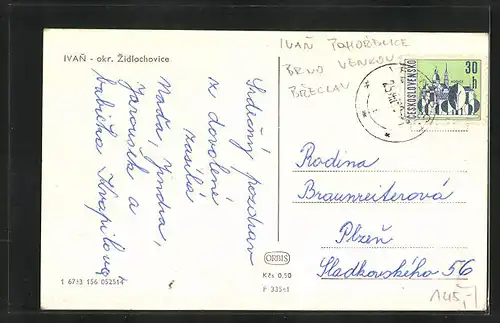 IVAŇ - okr. Židlochovice
IVAŇ POHOŘELICE
BRNO VENKOV
BŘECLAV
30
h
ČESKOSLOVENSKO
Srdečný pozdrav
z dovolené
zasílá
Naďa, Jindra,
Jaroušek a
babička Kvapilová
Rodina
Braunreiterová
Plzeň
Sladkovského 56
ORBIS
Kčs 0,50
1 67/3 156 052514
145,-